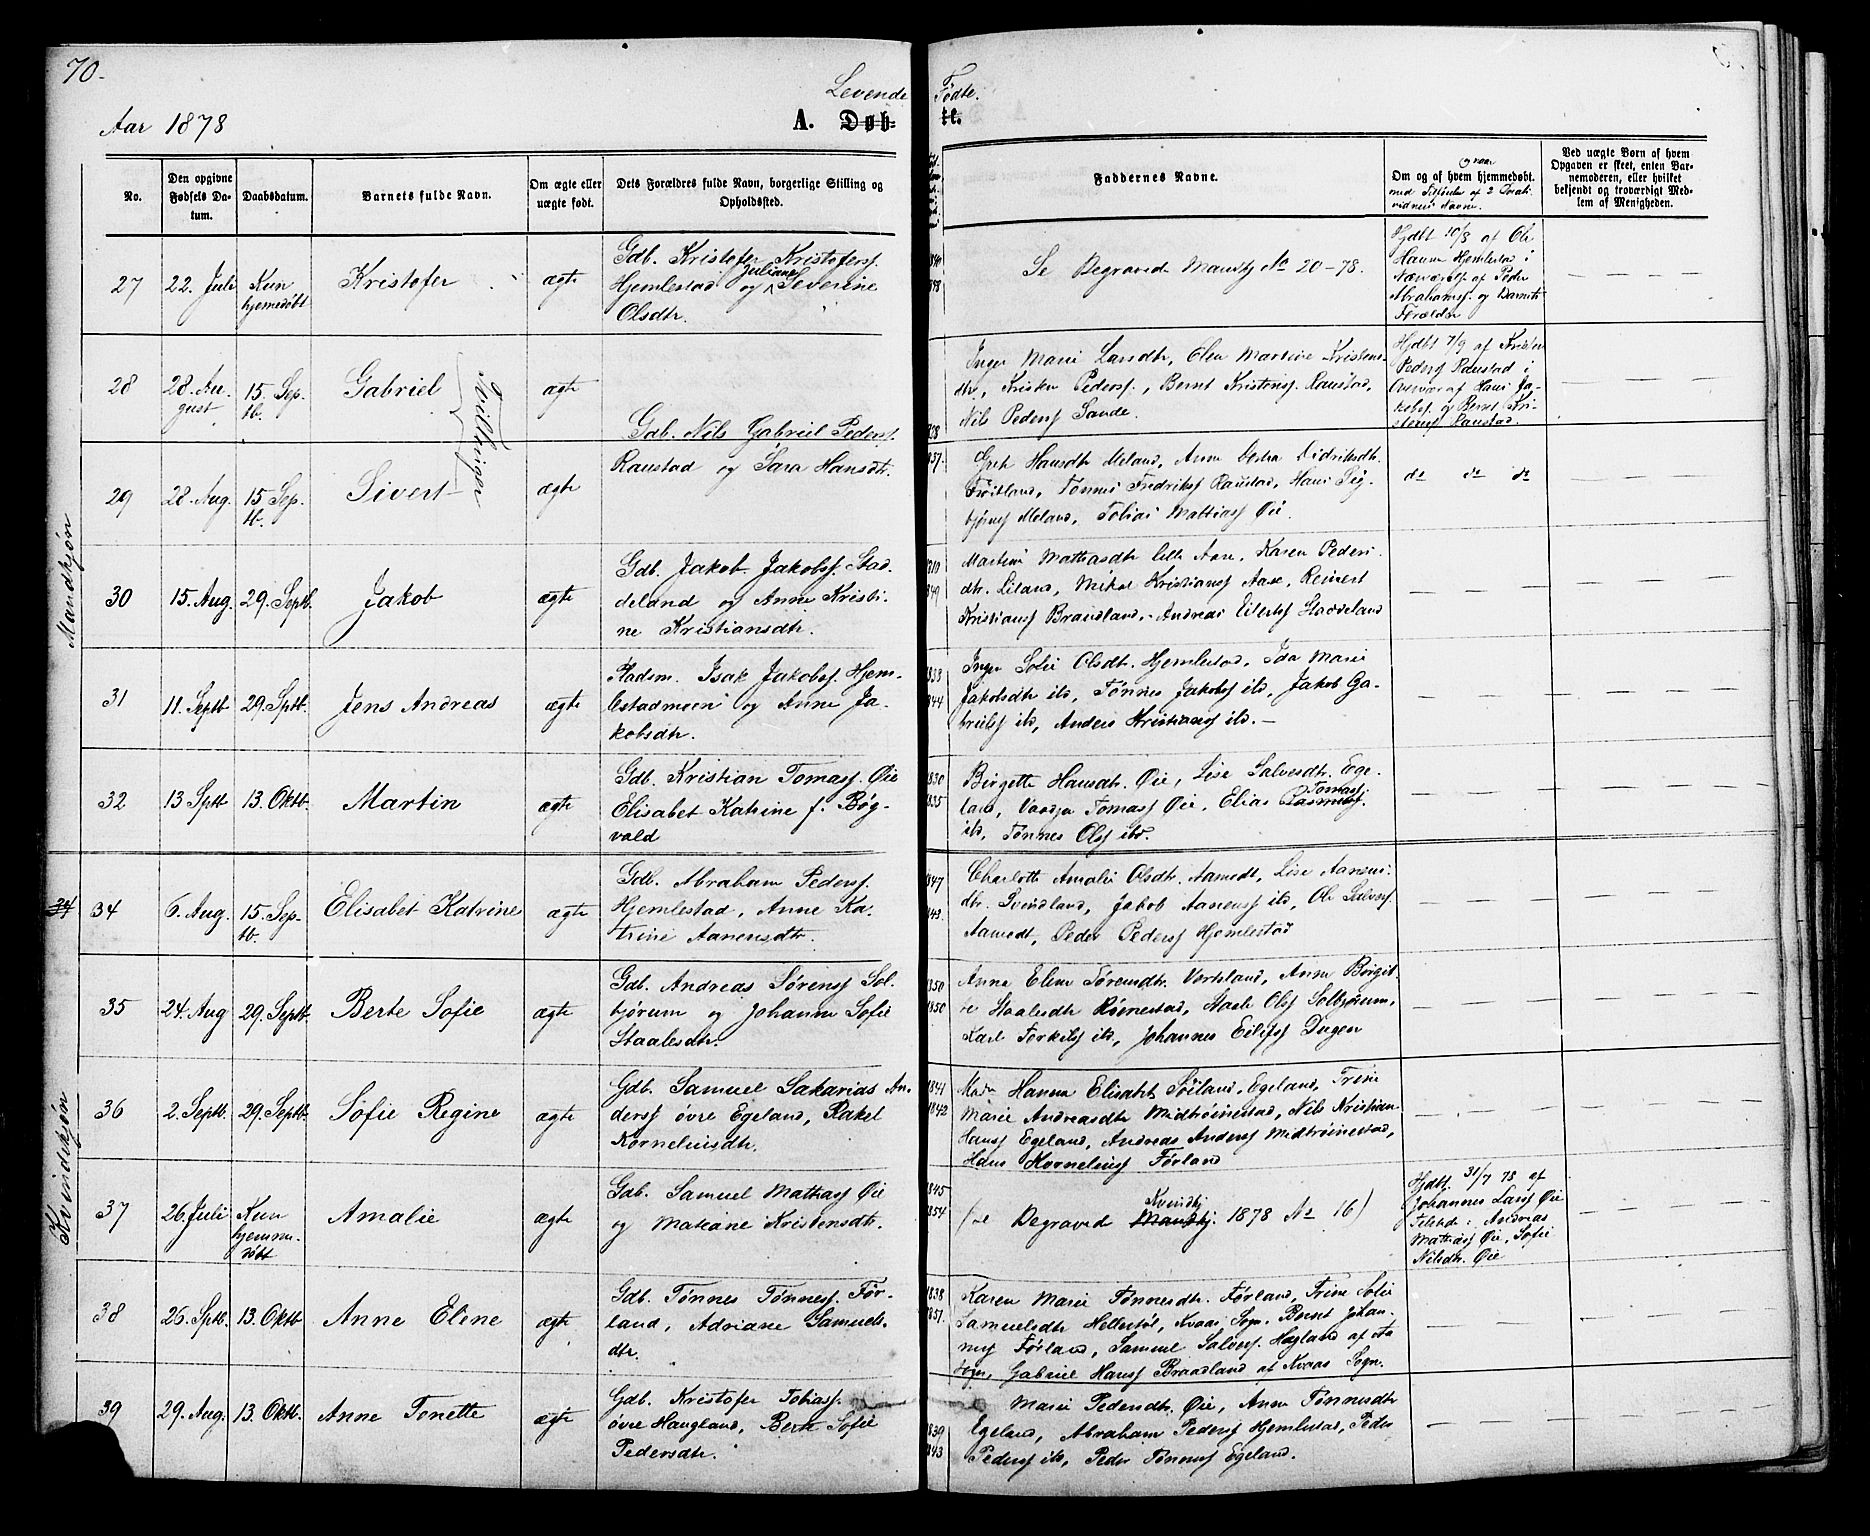 70.
Levende Fødte.
Aar 1878
A. Døbte.
No.
Den opgivne Fødsels Datum.
Daabsdatum.
Barnets fulde Navn.
Om ægte eller uægte født.
Dets Forældres fulde Navn, borgerlige Stilling og Opholdssted.
Faddernes Navne.
Om og af hvem hjemmedøbt.
Ved uægte Børn af hvem Opgaven er skeet, enten Barnemoderen, eller hvilket bekjendt og troværdigt Medlem af Menigheden.
Mandkjøn
27
22. Juli
Kun
hjemedøbt
Kristofer
ægte
Gdb. Kristofer Kristofersf.
Hjemlestad og Juliane Severine
Olsdtr.
Se Begraved Mandkj No 20-78.
Hjdbt 10/8 af Ole
Hanss Hjemlestad i
Nærværelse af Peder
Abrahamsf. og Barnets
Forældre
28
28. Au-
gust
15. Sep-
tb.
Gabriel
Tvillinger
ægte
Gdb. Nils Gabriel Pedersf.
Raustad og Sara Hansdtr.
1828
1857
Inger Marie Larsdtr, Elen Martine Kristens-
dtr, Kristen Pedersf., Bernt Kristensf. Raustad,
Nils Pedersf Sande.
Hjdbt 7/9 af Kristen
Pedersf Raustad i
Overvær af Hans Ja-
kobsf. og Bernt Kri-
stensf Raustad.
29
28. Aug.
15. Sep-
tb.
Sivert
ægte
Grete Hansdtr Meland, Anne Didriksdtr.
Frøitland, Tønnes Fredriksf Raustad, Hans Sig-
bjørnsf Meland, Tobias Mattiasf Øie.
do do do
30
15. Aug.
29. Septb.
Jakob
ægte
Gdb. Jakob Jakobsf. Stad-
deland og Anne Kristi-
ne Kristiansdtr.
Martine Mathiasdtr lille Aase, Karen Peders-
dtr. Liland, Mikal Kristiansf Aase, Reinert
Kristiansf Brandland, Andreas Eilertsf Staddeland
31
11. Septb
29. Septb.
Jens Andreas
ægte
Pladsm. Isak Jakobsf. Hjem-
lestadmoen og Anne Ja-
kobsdtr.
1833
1844
Inger Sofie Olsdtr. Hjemlestad, Ida Marie
Jakobsdtr ibd, Tønnes Jakobsf ibd, Jakob Ga-
brielsf ibd, Anders Kristiansf ibd.
32
13 Septb
13. Oktb.
Martin
ægte
Gdb. Kristian Tomasf. Øie
Elisabet Katrine f. Bøg-
vald
1830
1835
Birgette Hansdtr. Øie, Lise Salvesdtr. Ege-
land, Tomasf Øie, Elias Rasmusf Tomasf.
ibd, Tønnes Olsf ibd.
Kvindekjøn
34
34
6. Aug.
15. Sep-
tb.
Elisabet Katrine
ægte
Gdb. Abraham Pedersf.
Hjemlestad, Anne Ka-
trine Aanensdtr.
1847
1843
Charlotte Amalie Olsdtr. Aamodt, Lise Aanens-
dtr. Svindland, Jakob Aanensf ibd, Ole Salvesf.
Aamodt, Peder Pedersf Hjemlestad
35
24. Aug
29. Septb.
Berte Sofie
ægte
Gdb. Andreas Sørensf Sol-
bjørum og Johanne Sofie
Staalesdtr.
1850
1850
Anne Eline Sørensdtr. Versland, Anne Birgit-
te Staalesdtr Røinestad, Staale Olsf Solbjørum,
Karl Torkilsf ibd, Johannes Eilifsf Dugen
36
2. Septb.
29. Septb.
Sofie Regine
ægte
Gdb. Samuel Sakarias An-
dersf øvre Egeland, Rakel
Korneliusdtr.
1841
1842
Mad. Hanna Elisabet Søiland, Egeland, Trine
Marie Andreasdtr Midtrøinestad, Nils Kristian
Hansf Egeland, Andreas Andersf Midtrøinestad,
Hans Korneliusf Førland
37
26. Juli
Kun
hjemme-
døbt
Amalie
ægte
Gdb. Samuel Mathiasf Øie
og Mariane Kristensdtr.
1845
1854
(se Begraved Mandkj. Kvindkj 1878 No 16)
Hjdbt. 31/7 78 af
Johannes Larsf Øie
Tilsted: Andreas
Mathiasf Øie, Sofie
Nilsdtr. Øie
38
26. Septb.
13. Oktb
Anne Eline
ægte
Gdb. Tønnes Tønnesf. Før-
land, Adriane Samuels-
dtr.
1838
1837.
Karen Marie Tønnesdtr. Førland, Trine Sofie
Samuelsdtr Hellestøl, Kvaas Sogn, Bernt Johan-
nesf Førland, Samuel Salvesf. Høgland af Aa
Sogn, Gabriel Hansf Braadland af Kvaas Sogn.
39
29. Aug.
13. Oktb.
Anne Tonette
ægte
Gdb. Kristofer Tobiasf.
øvre Haugland, Berte Sofie
Pedersdtr.
1839
1843
Marie Pedersdtr. Øie, Anne Tønnesdtr
Egeland, Abraham Pedersf Hjemlestad, Peder
Pedersf ibd, Peder Tønnesf Egeland.